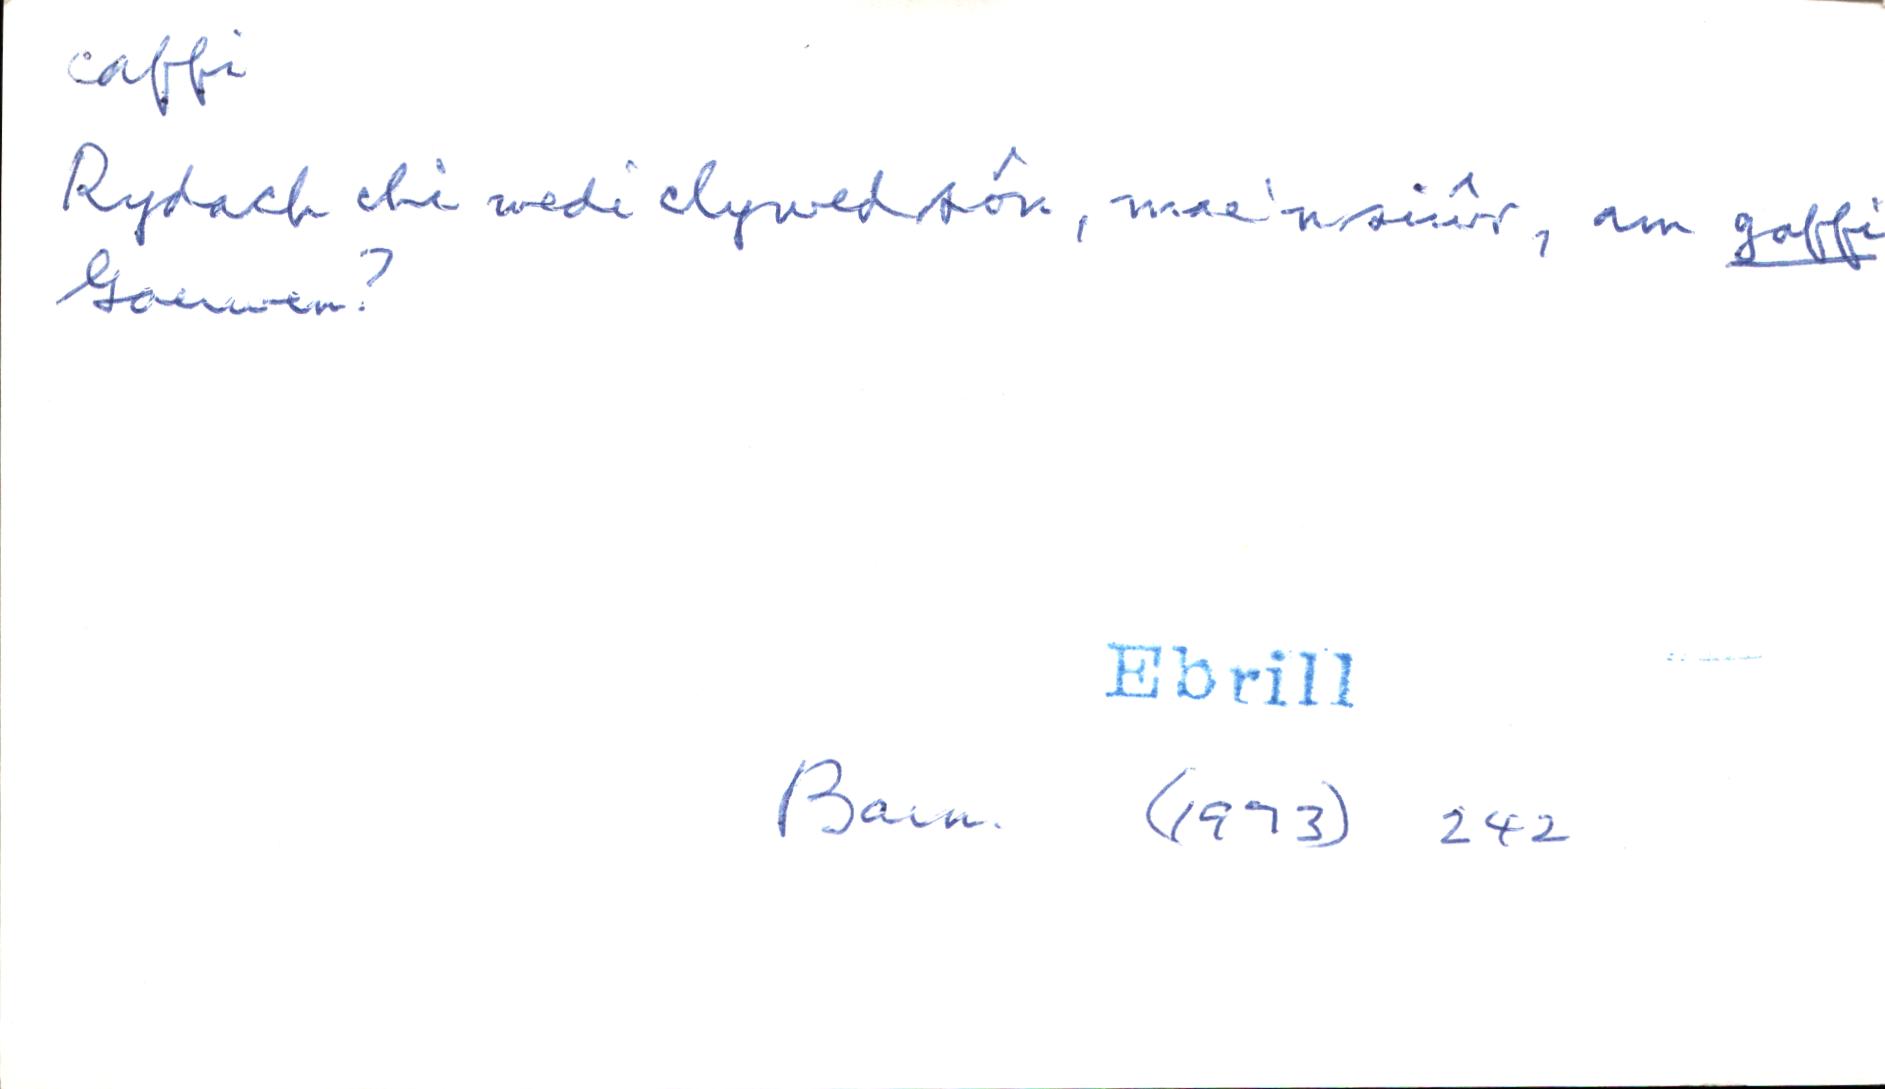 caffi
Rydach chi wedi clywed sôn, mae'n siŵr, am gaffi
Gaerwen?
Ebrill
Barn. (1973) 242